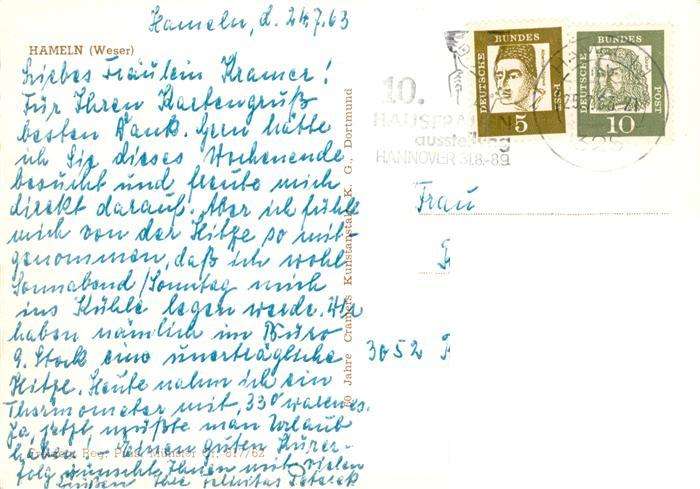 Hameln, d. 24.7.63
HAMELN (Weser)
Liebes Fräulein Kramer!
Für Ihren Kartengruß
besten Dank. Gern hätte
ich Sie dieses Wochenende
besucht und freute mich
direkt darauf. Aber ich fühle
mich von der Hitze so mit-
genommen, daß ich wohl
Sonnabend/Sonntag mich
ins Kühle legen werde. Wir
haben nämlich im Büro
9. Stock eine unerträgliche
Hitze. Heute nahm ich ein
Thermometer mit, 33° waren es.
Ja, jetzt müßte man Urlaub
haben! Einen guten Kurer-
folg wünscht Ihnen mit vielen
Grüßen Ihre Felicitas
50 Jahre Cramers Kunstanstalt K. G., Dortmund
10.
HAUSFRAUEN
ausstellung
HANNOVER 31.8.-8.9
DEUTSCHE BUNDES POST
5
DEUTSCHE BUNDES POST
10
Frau
3052